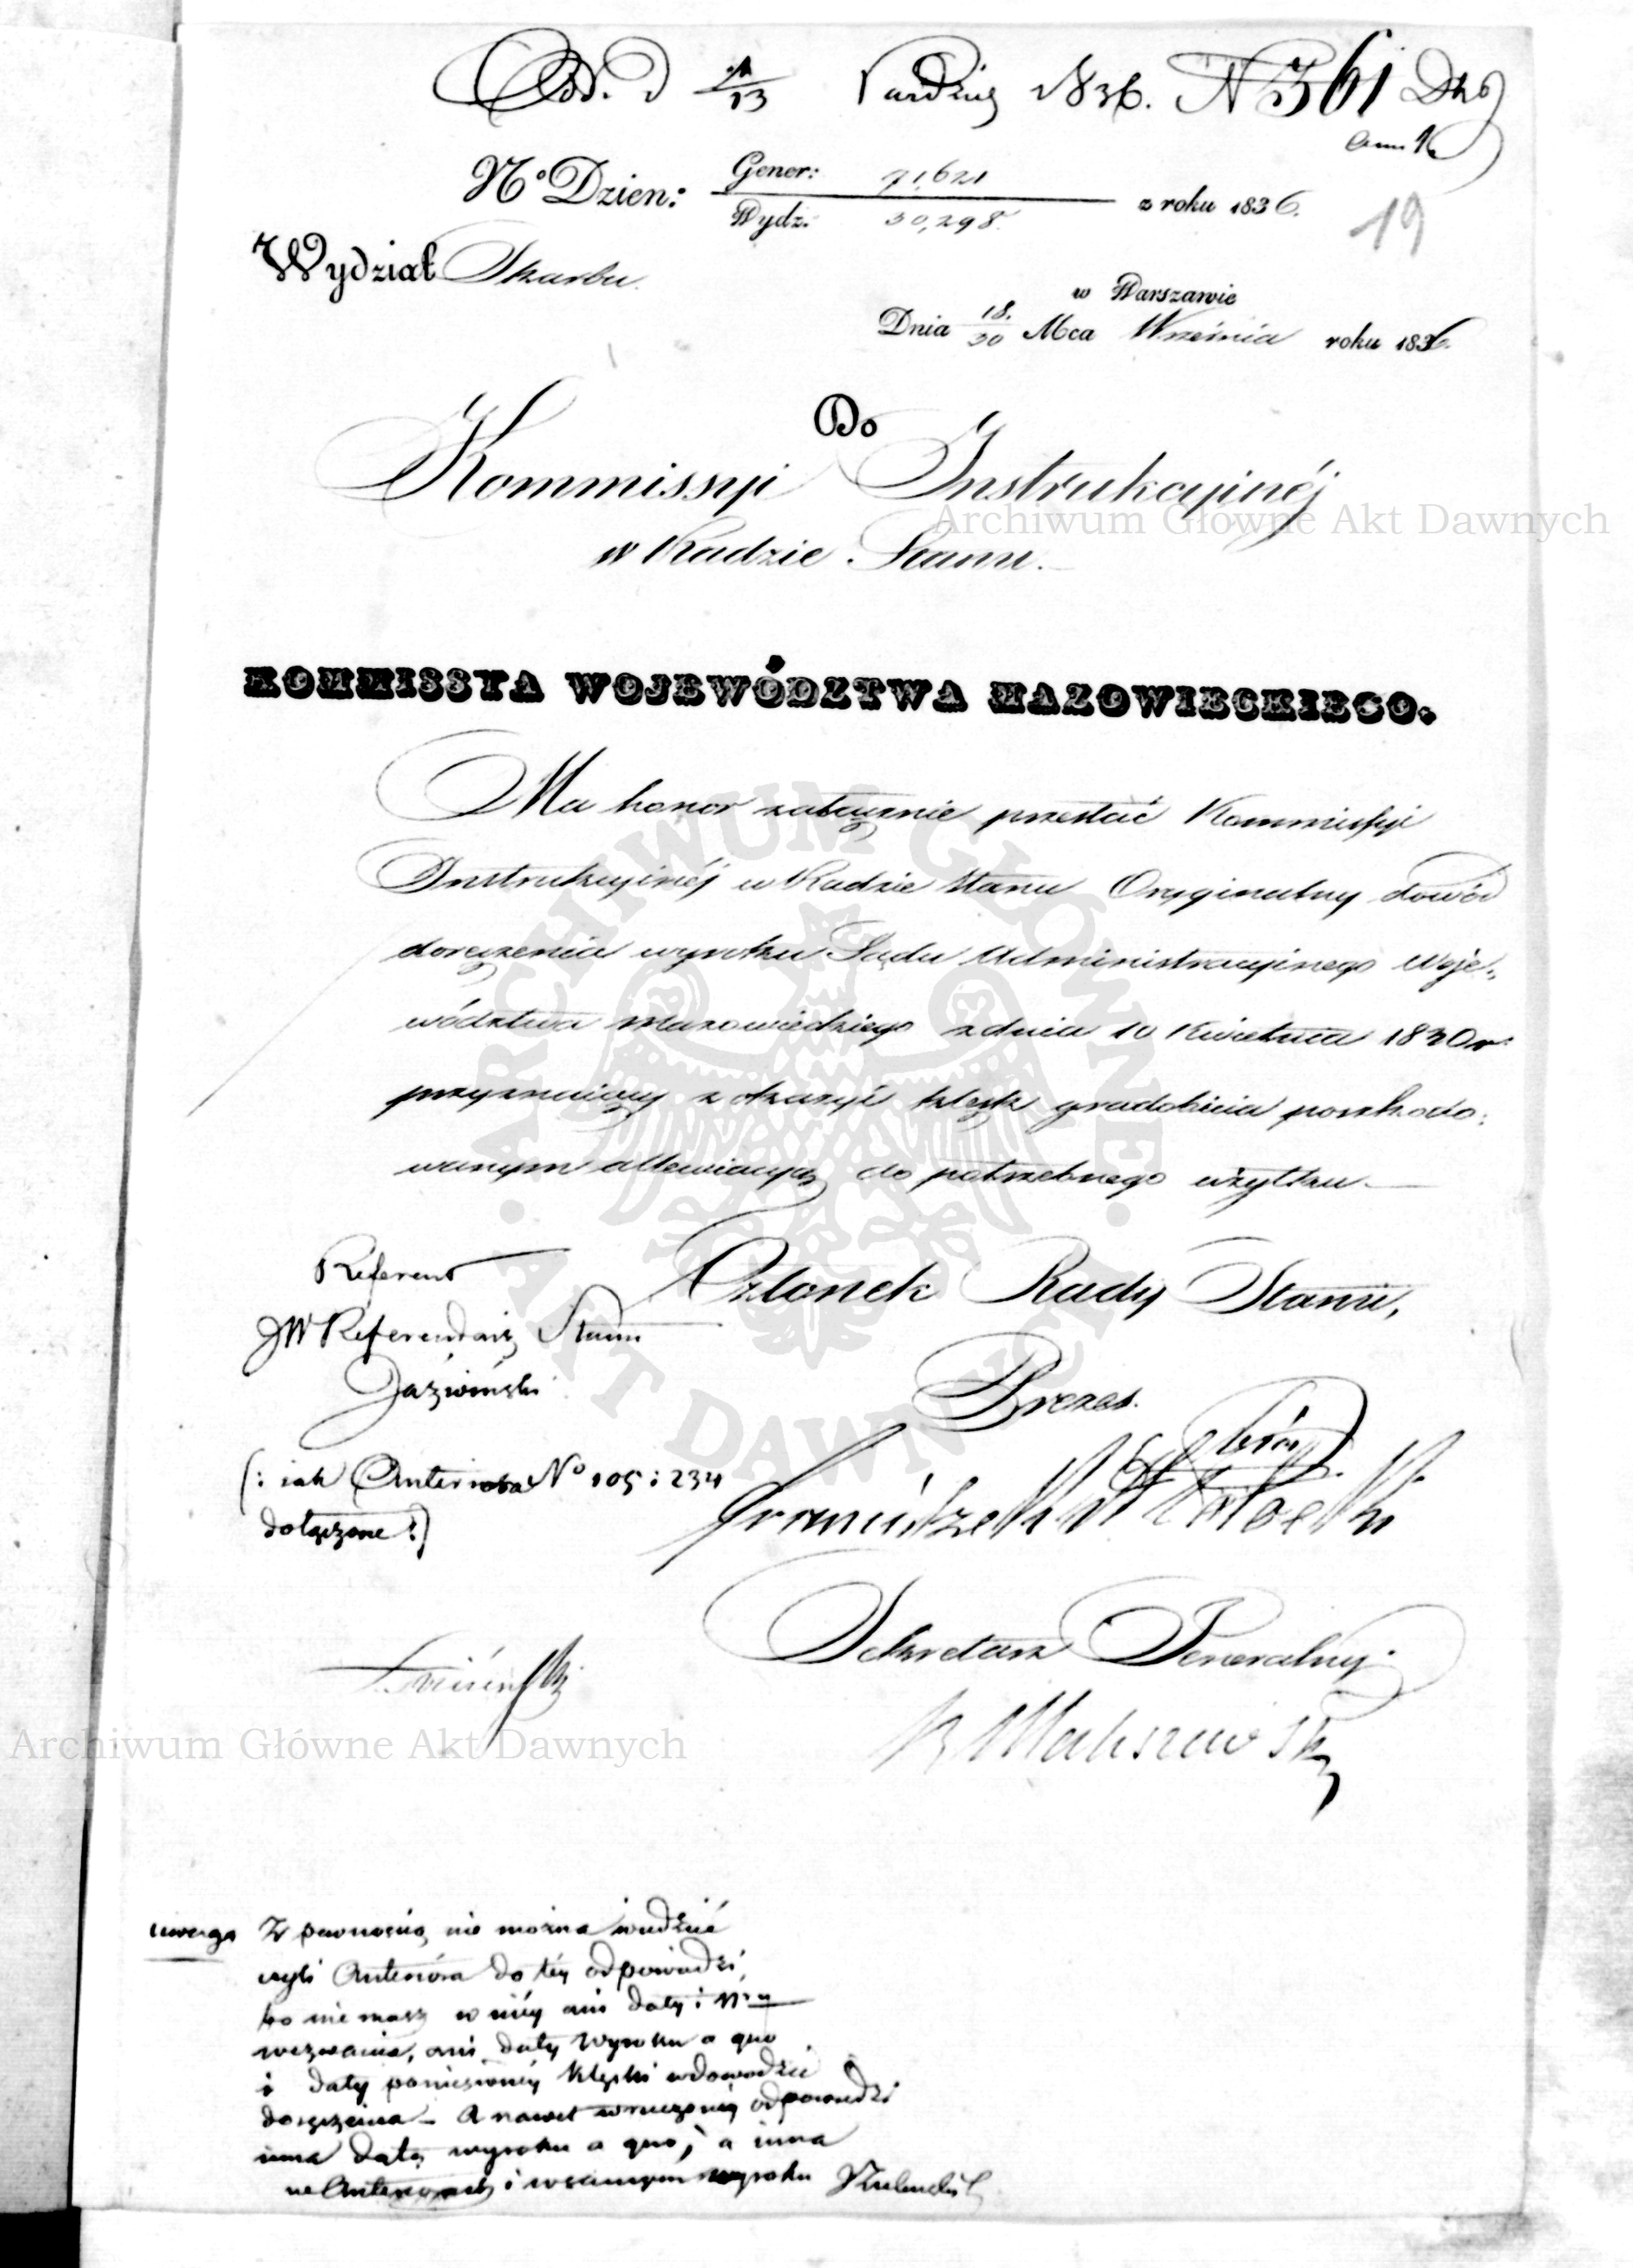 Od. d 1/13 Paźdźier 1836. N 361 Dko
Ann 1.
No Dzien: Gener: 71,621
Wydz. 30,298. z roku 1836.
19
Wydział Skarbu.
w Warszawie
Dnia 18./30 Mca Września roku 1836.
Do
Kommissyi Instrukcyjnéj
w Radzie Stanu.
Archiwum Główne Akt Dawnych
KOMMISSYA WOJEWÓDZTWA MAZOWIECKIEGO.
Ma honor załącznie przesłać Kommissyi
Instrukcyjnéj w Radzie Stanu Oryginalny dowód
doręczenia wyroku Sądu Administracyjnego Woje-
wództwa Mazowieckiego z dnia 10 Kwietnia 1830 r:
przyznaiący z okazyi klęsk gradobicia poszkodo-
wanym allewiacyą do potrzebnego użytku.
ARCHIWUM GŁÓWNE AKT DAWNYCH
Referent
JW Referendarz Stanu
(: iak Anteriora No 105 i 234
dołączone :)
Członek Rady Stanu,
Prezes.
Sekretarz Generalny.
Archiwum Główne Akt Dawnych
uwaga Z pewnością nie można wiedzieć
czyli Anteriora do téy odpowiedzi,
bo nie masz w niéy ani daty i Nru
wezwania, ani daty Wyroku a quo
i daty poniesionéy klęski w dowodzie
doręczenia – A nawet w ninieyszéy odpowiedzi
inna data wyroku a quo, a inna
w Anteriorach i w samym wyroku